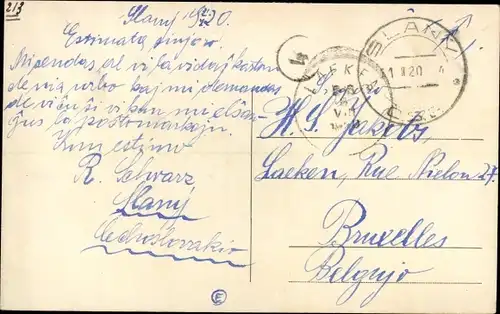 213
Slaný 1920.
Estimata sinjoro.
Mi sendas al vi la vidaĵkarton
de nia urbo kaj mi demandas
de vi ĉu ŝi vi kun mi elŝan-
ĝus la poŝtomarkojn.
Kun estimo
R. Schwarz
Slaný
Ĉeĥoslovakio
E
4
SLANÝ
II 20
H. G. Jakobs,
Laeken, Rue Stielon 27.
Bruxelles
Belgujo